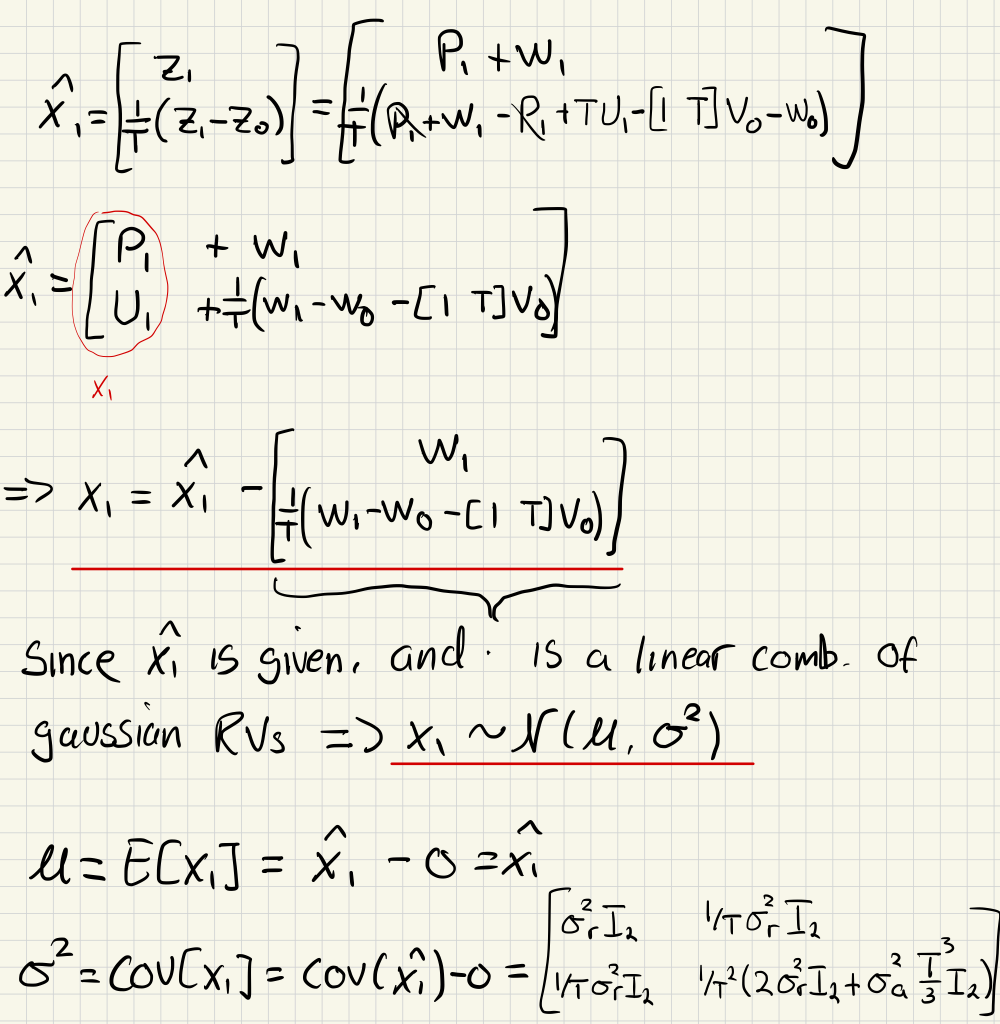 x̂₁ = [ z₁ ; 1/T (z₁ - z₀) ] = [ P₁ + w₁ ; 1/T (P₁ + w₁ - P₁ + TU₁ - [1 T]V₀ - w₀) ]
x̂₁ = [ P₁ + w₁ ; U₁ + 1/T (w₁ - w₀ - [1 T]V₀) ]
x₁
=> x₁ = x̂₁ - [ w₁ ; 1/T (w₁ - w₀ - [1 T]V₀) ]
Since x̂₁ is given, and · is a linear comb. of
gaussian RVs => x₁ ~ N(μ, σ²)
μ = E[x₁] = x̂₁ - 0 = x̂₁
σ² = COV[x₁] = COV(x̂₁) - 0 = [ σᵣ² I₂  1/T σᵣ² I₂ ; 1/T σᵣ² I₂  1/T² (2σᵣ² I₂ + σₐ² T³/3 I₂) ]